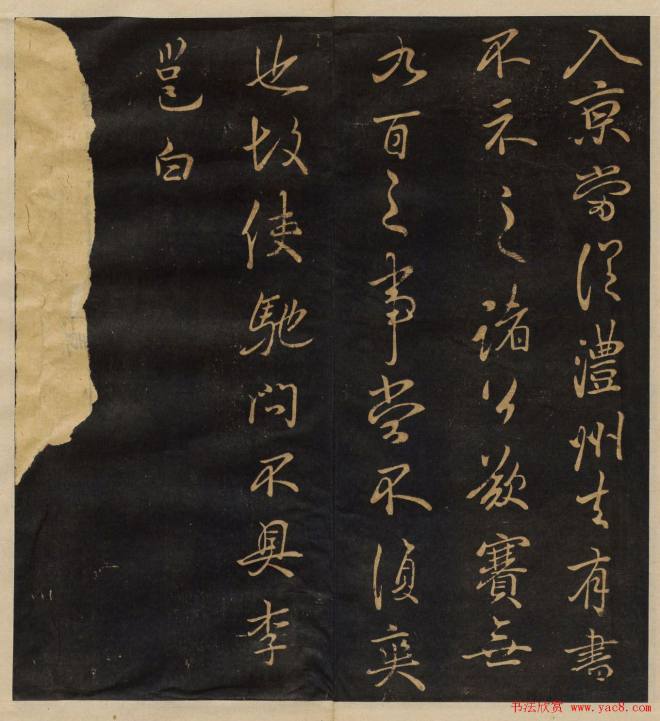 入京當從澧州去有書
不示之諸公欲賽無
九百之事當不須爽
也故使馳問不具李
邕白
书法欣赏 www.yac8.com